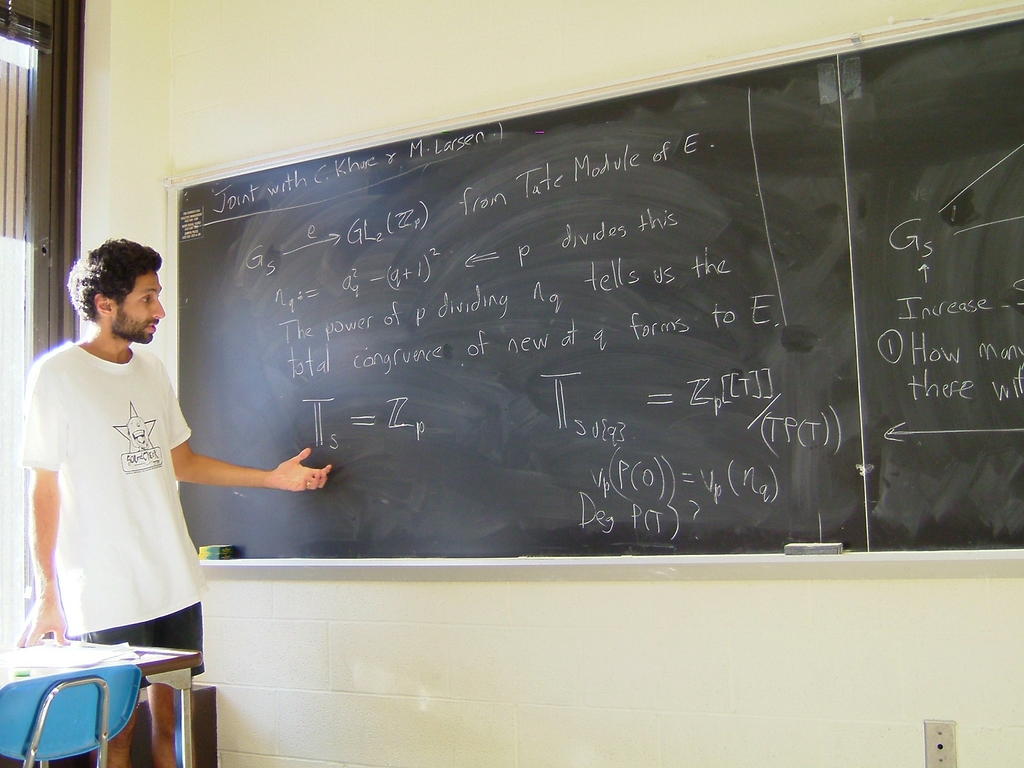 Joint with C. Khare & M. Larsen.)
G_S —e→ GL_2(ℤ_p) from Tate Module of E.
n_q := a_q^2 - (q+1)^2 ⇐ p divides this
The power of p dividing n_q tells us the
total congruence of new at q forms to E.
𝕋_S = ℤ_p
𝕋_{S∪{q}} = ℤ_p[[T]]/(TP(T))
v_p(P(0)) = v_p(n_q)
Deg P(T)?
G_S
↑
Increase
① How many
there